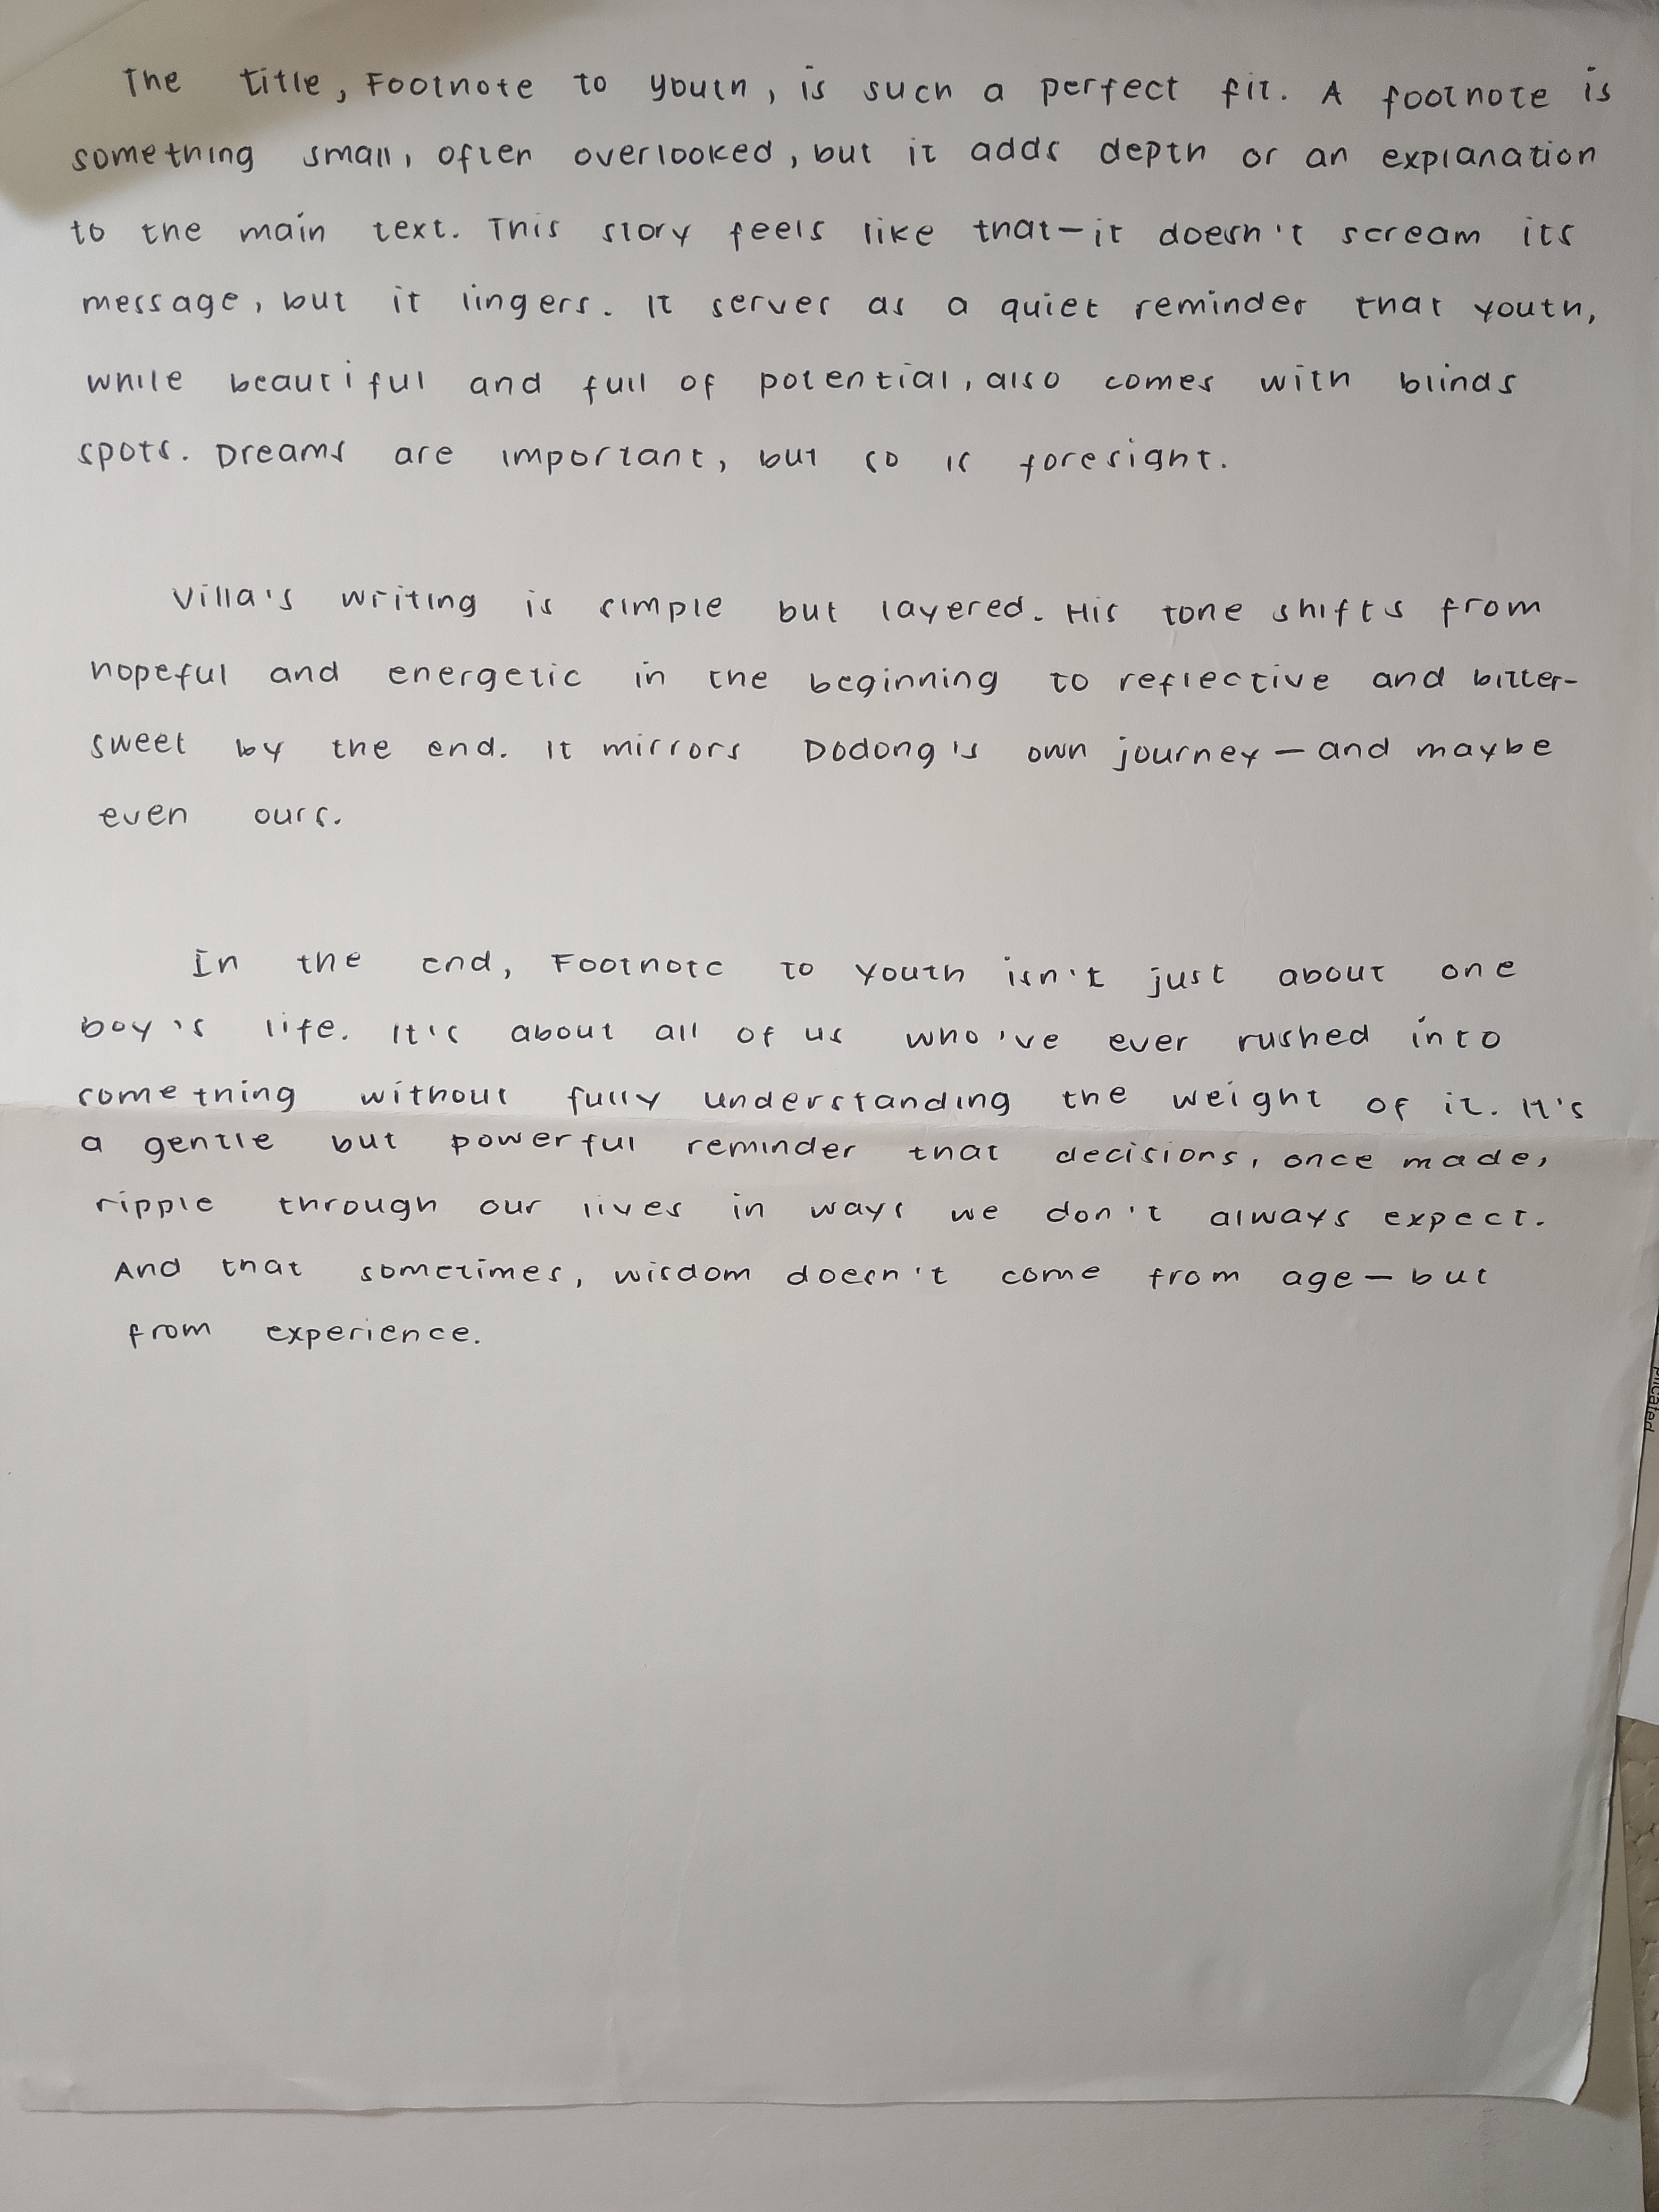 The title, Footnote to youth, is such a perfect fit. A footnote is
something small, often overlooked, but it adds depth or an explanation
to the main text. This story feels like that—it doesn't scream its
message, but it lingers. It serves as a quiet reminder that youth,
while beautiful and full of potential, also comes with blinds
spots. Dreams are important, but so is foresight.
Villa's writing is simple but layered. His tone shifts from
hopeful and energetic in the beginning to reflective and bitter-
sweet by the end. It mirrors Dodong's own journey—and maybe
even ours.
In the end, Footnote to Youth isn't just about one
boy's life. It's about all of us who've ever rushed into
something without fully understanding the weight of it. It's
a gentle but powerful reminder that decisions, once made,
ripple through our lives in ways we don't always expect.
And that sometimes, wisdom doesn't come from age—but
from experience.